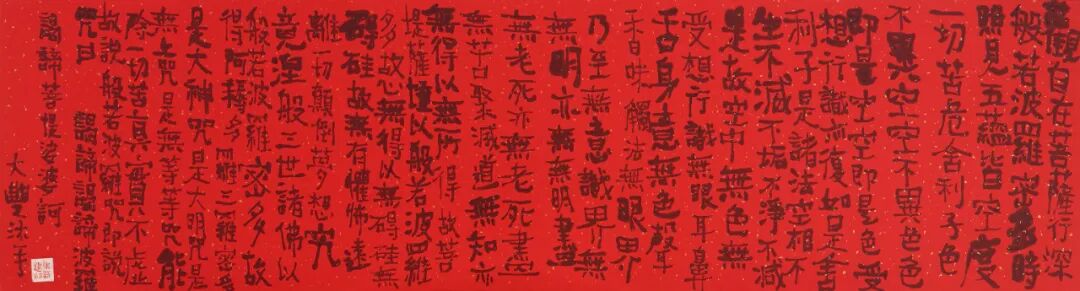 觀自在菩薩行深
般若波羅密多時
照見五蘊皆空度
一切苦危舍利子色
不異空空不異色色
即是空空即是色受
想行識亦復如是舍
利子是諸法空相不
生不滅不垢不淨不減
是故空中無色無
受想行識無眼耳鼻
舌身意無色聲
香味觸法無眼界
乃至無意識界無
無明亦無無明盡
無老死亦無老死盡
無苦聚滅道無知亦
無得以無所得故菩
提薩埵以般若波羅
多故心無得以無碍硅無
碍硅故無有懼怖遠
離一切顛倒夢想究
竟涅般三世諸佛以
般若波羅密多故
得阿耨多羅三
是大神咒是大明咒是
無上咒是無等等咒能
除一切苦真實不虛
故說般若波羅咒即說
咒曰 謁諦謁諦波羅
謁諦菩提娑婆訶
大豐法